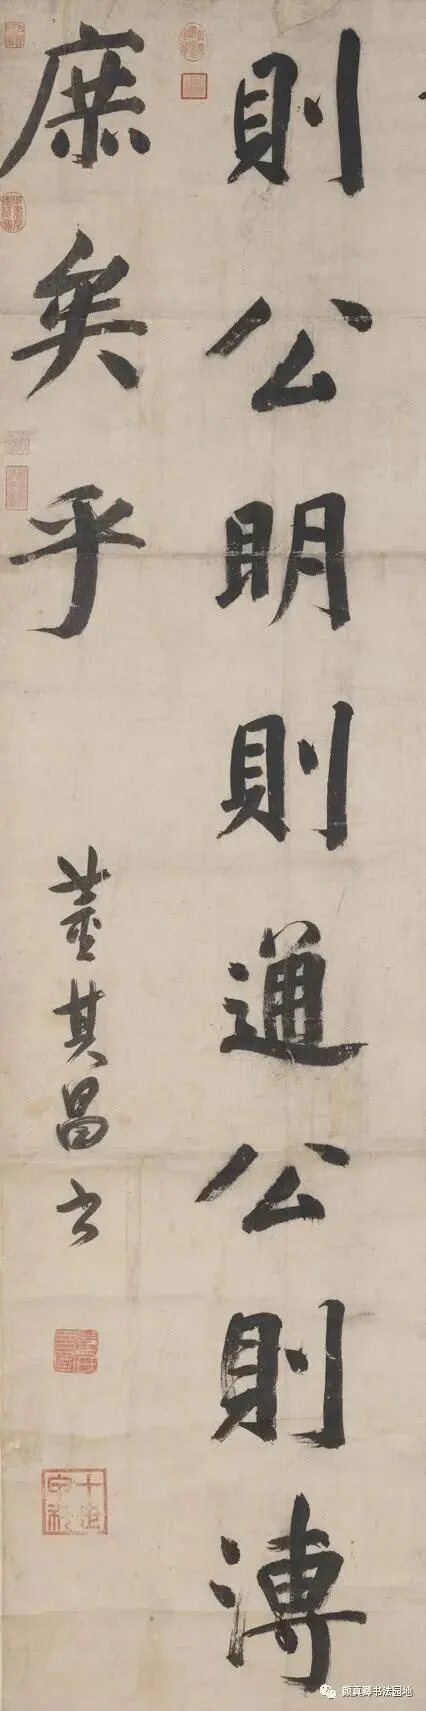 則公明則通公則溥
庶矣乎
董其昌書
颜真卿书法园地